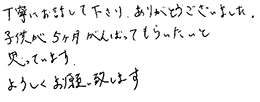 丁寧にお話して下さり、ありがとうございました。
子供が5ヶ月がんばってもらいたいと
思っています。
よろしくお願い致します